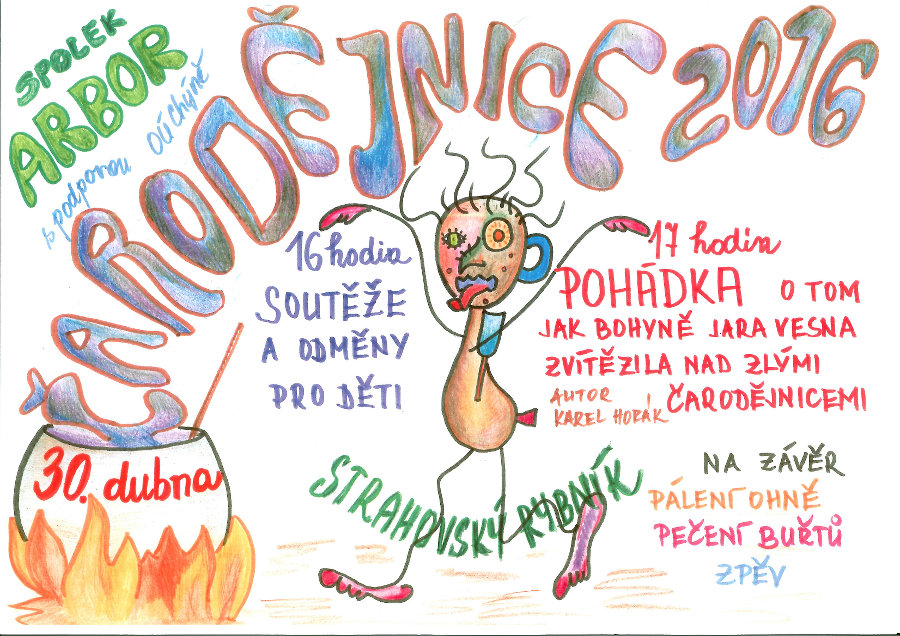 SPOLEK
ARBOR
s podporou OÚ Chýně
ČARODĚJNICE 2016
30. dubna
16 hodin
SOUTĚŽE
A ODMĚNY
PRO DĚTI
17 hodin
POHÁDKA O TOM
JAK BOHYNĚ JARA VESNA
ZVÍTĚZILA NAD ZLÝMI
ČARODĚJNICEMI
AUTOR
KAREL HORÁK
STRAHOVSKÝ RYBNÍK
NA ZÁVĚR
PÁLENÍ OHNĚ
PEČENÍ BUŘTŮ
ZPĚV